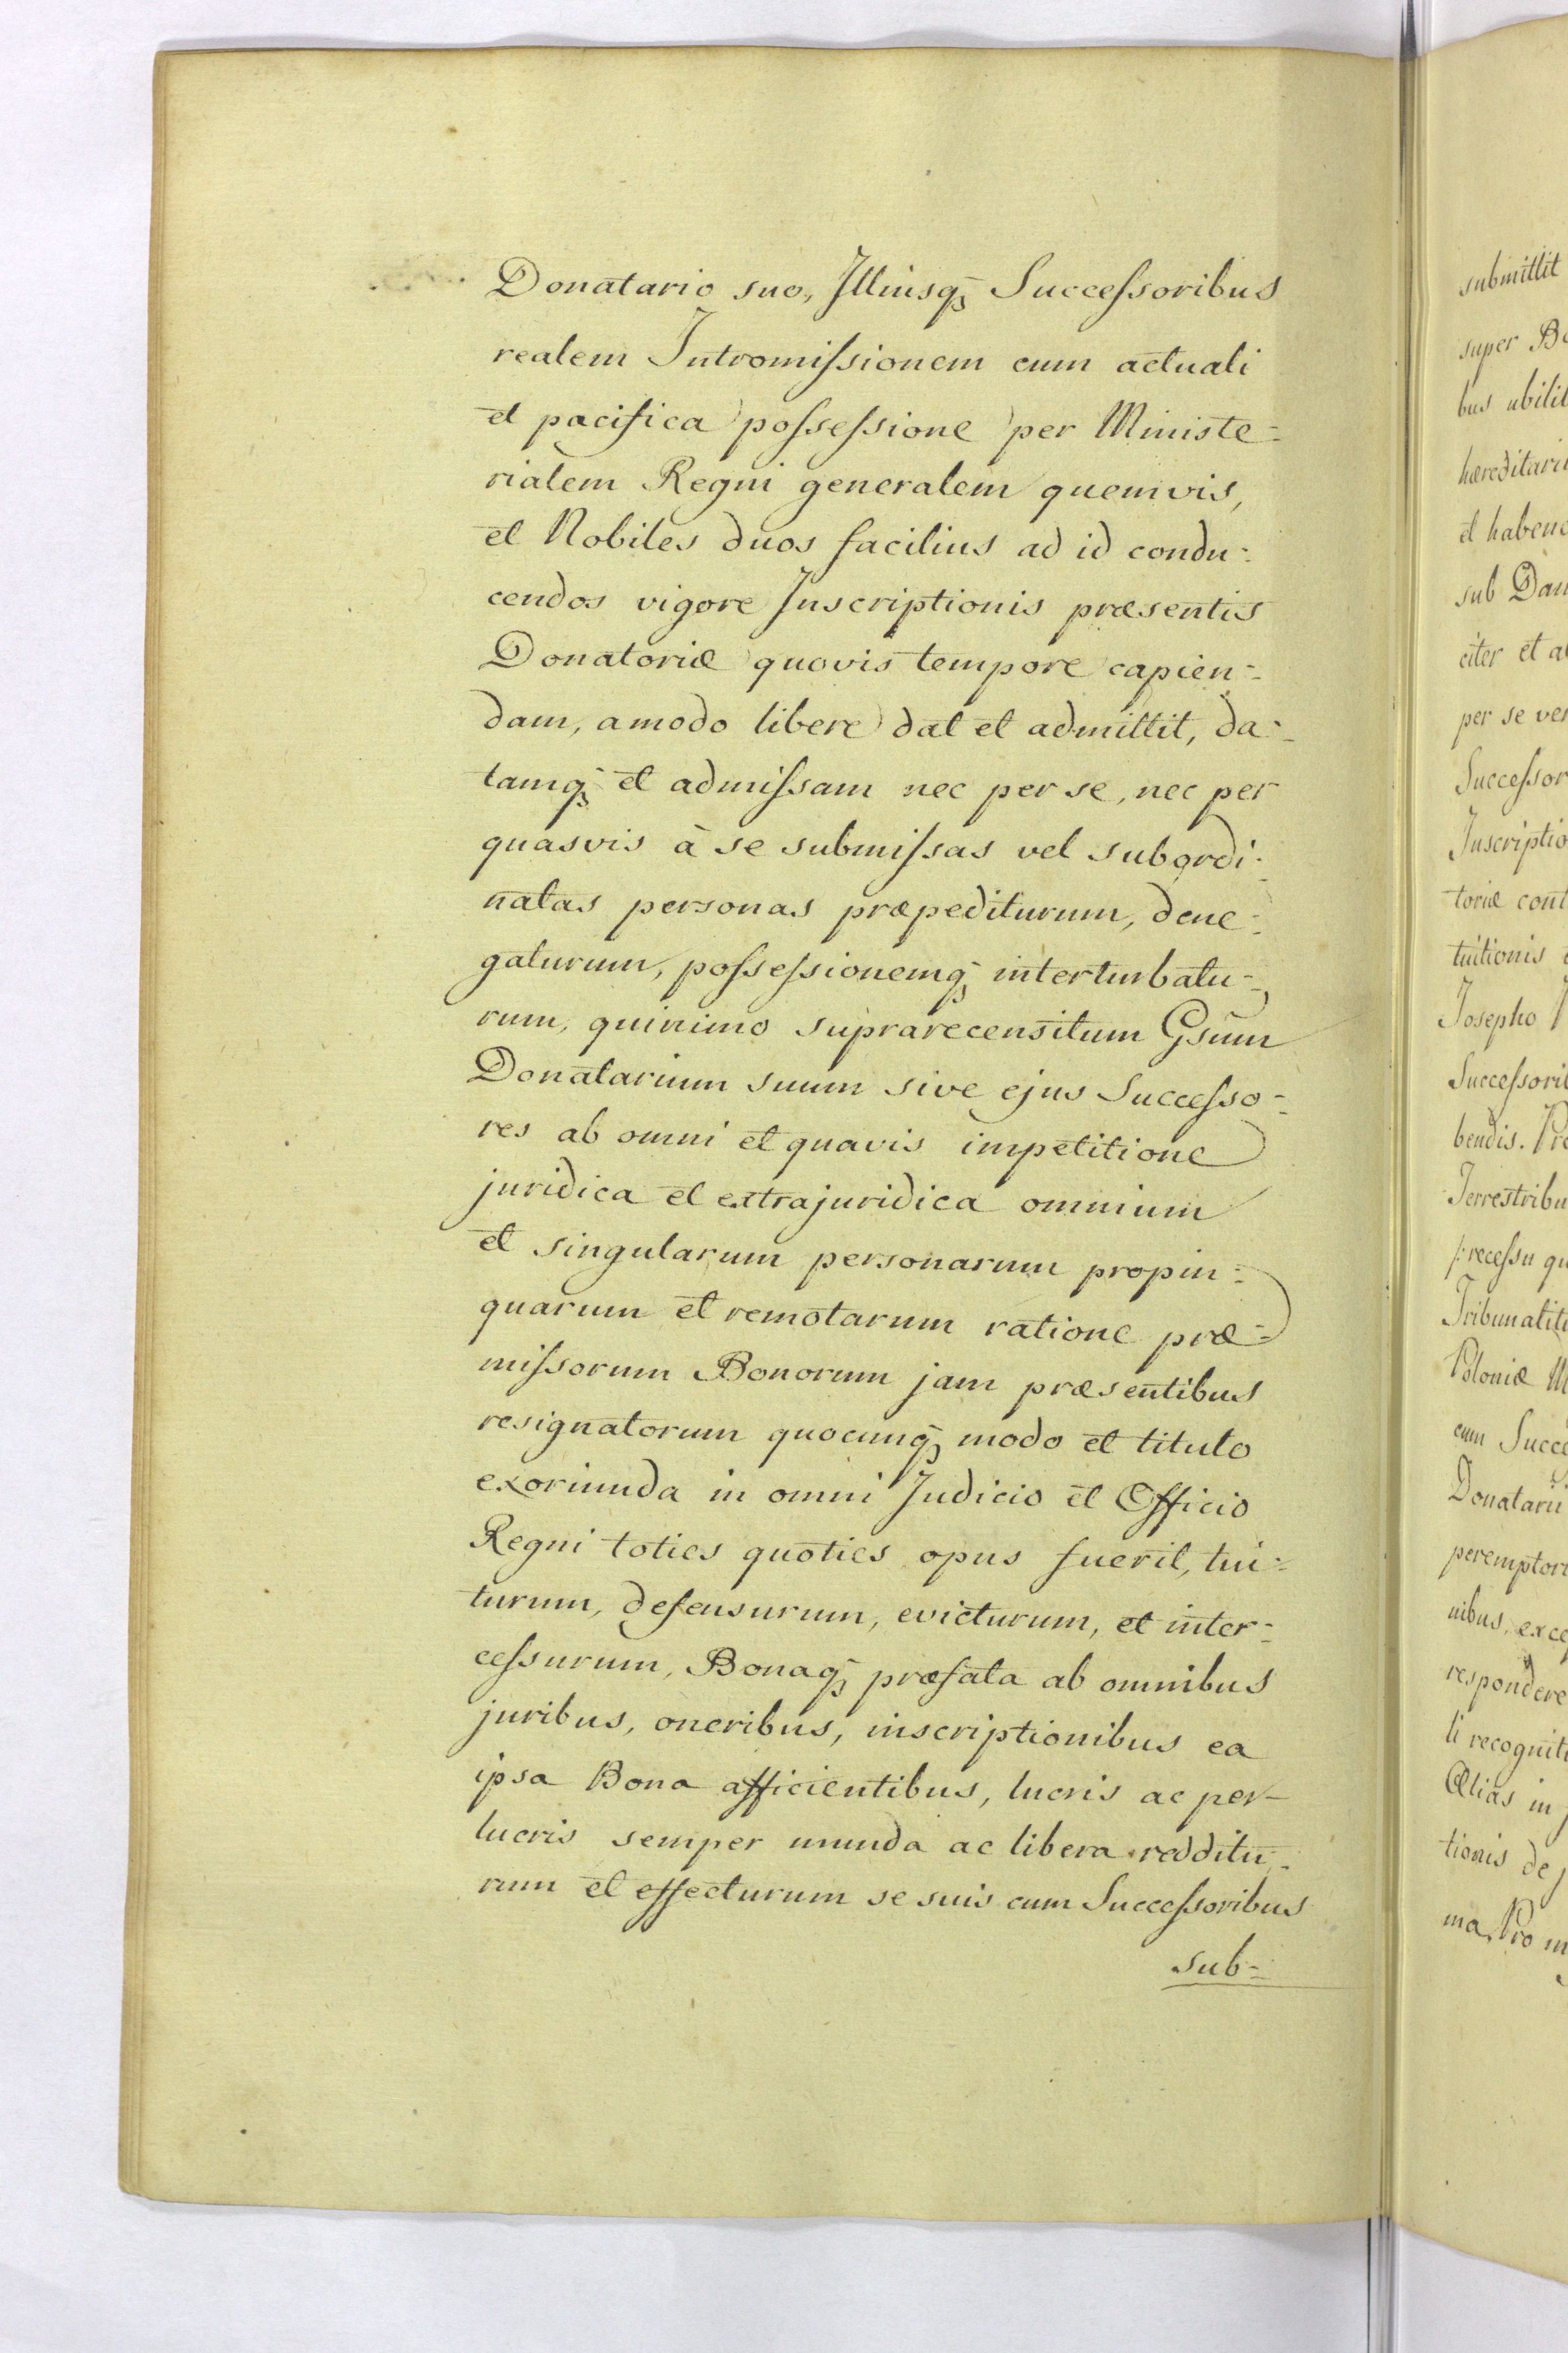 Donatario suo, Illiusq; Successoribus
realem Intromissionem cum actuali
et pacifica possessione per Ministe-
rialem Regni generalem quemvis,
et Nobiles duos facilius ad id condu-
cendos vigore Inscriptionis præsentis
Donatoriæ quovis tempore capien-
dam, amodo libere dat et admittit, da-
tamq; et admissam nec per se, nec per
quasvis à se submissas vel subordi-
natas personas præpediturum, dene-
gaturum, possessionemq; interturbatu-
rum, quinimo suprarecensitum Gsum
Donatarium suum sive ejus Successo-
res ab omni et quavis impetitione
juridica et extrajuridica omnium
et singularum personarum propin-
quarum et remotarum ratione præ-
missorum Bonorum jam præsentibus
resignatorum quocunq; modo et titulo
exoriunda in omni Judicio et Officio
Regni toties quoties opus fuerit, tui-
turum, defensurum, evicturum, et inter-
cessurum, Bonaq; præfata ab omnibus
juribus, oneribus, inscriptionibus ea
ipsa Bona afficientibus, lucris ac per-
lucris semper munda ac libera redditu-
rum et effecturum se suis cum Successoribus
sub-
submittit
super
bus
hæreditari
et
sub
citer et
per se
Successor
Inscriptio
toriæ
tuitionis
Josepho
Successorib
bendis.
Terrestribu
recessu
Tribunaliti
Poloniæ
cum
Donatarii
peremptor
nibus,
respondere
li
Alias in
tionis de
ma, Pro